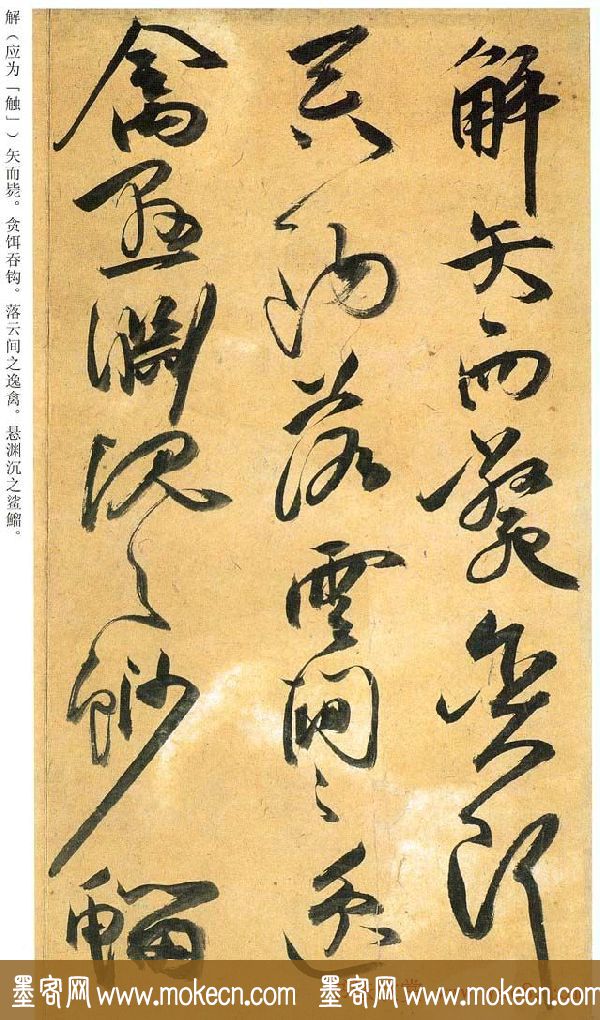 解矢而斃貪餌
吞鉤落雲間之逸
禽懸淵沉之魦鰡
解（应为「触」）矢而毙。贪饵吞钩。落云间之逸禽。悬渊沉之鲨鰡。
墨客网 www.mokecn.com 墨客网 www.mokecn.com